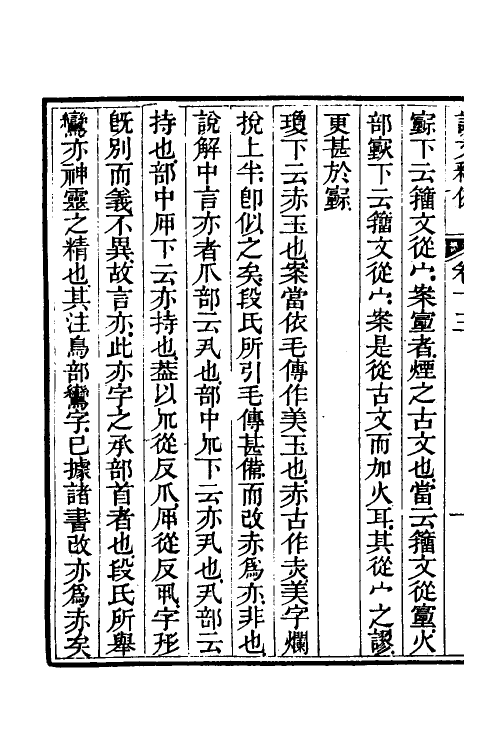 說文釋例 卷十三
下云籒文從宀.案者.煙之古文也.當云籒文從火
部下云籒文從宀.案是從古文而加火耳.其從宀之謬.
更甚於
瓊下云赤玉也.案當依毛傳作美玉也.赤古作灻.美字爛
挩上半.卽似之矣.段氏所引毛傳甚備.而改赤爲亦.非也.
說解中言亦者.爪部云丮也.部中下云亦丮也.丮部云
持也.部中下云亦持也.葢以從反爪.從反丮.字形
旣別而義不異.故言亦.此亦字之承部首者也.段氏所舉
鸞亦神靈之精也.其注鳥部鸞字.已據諸書改亦爲赤矣